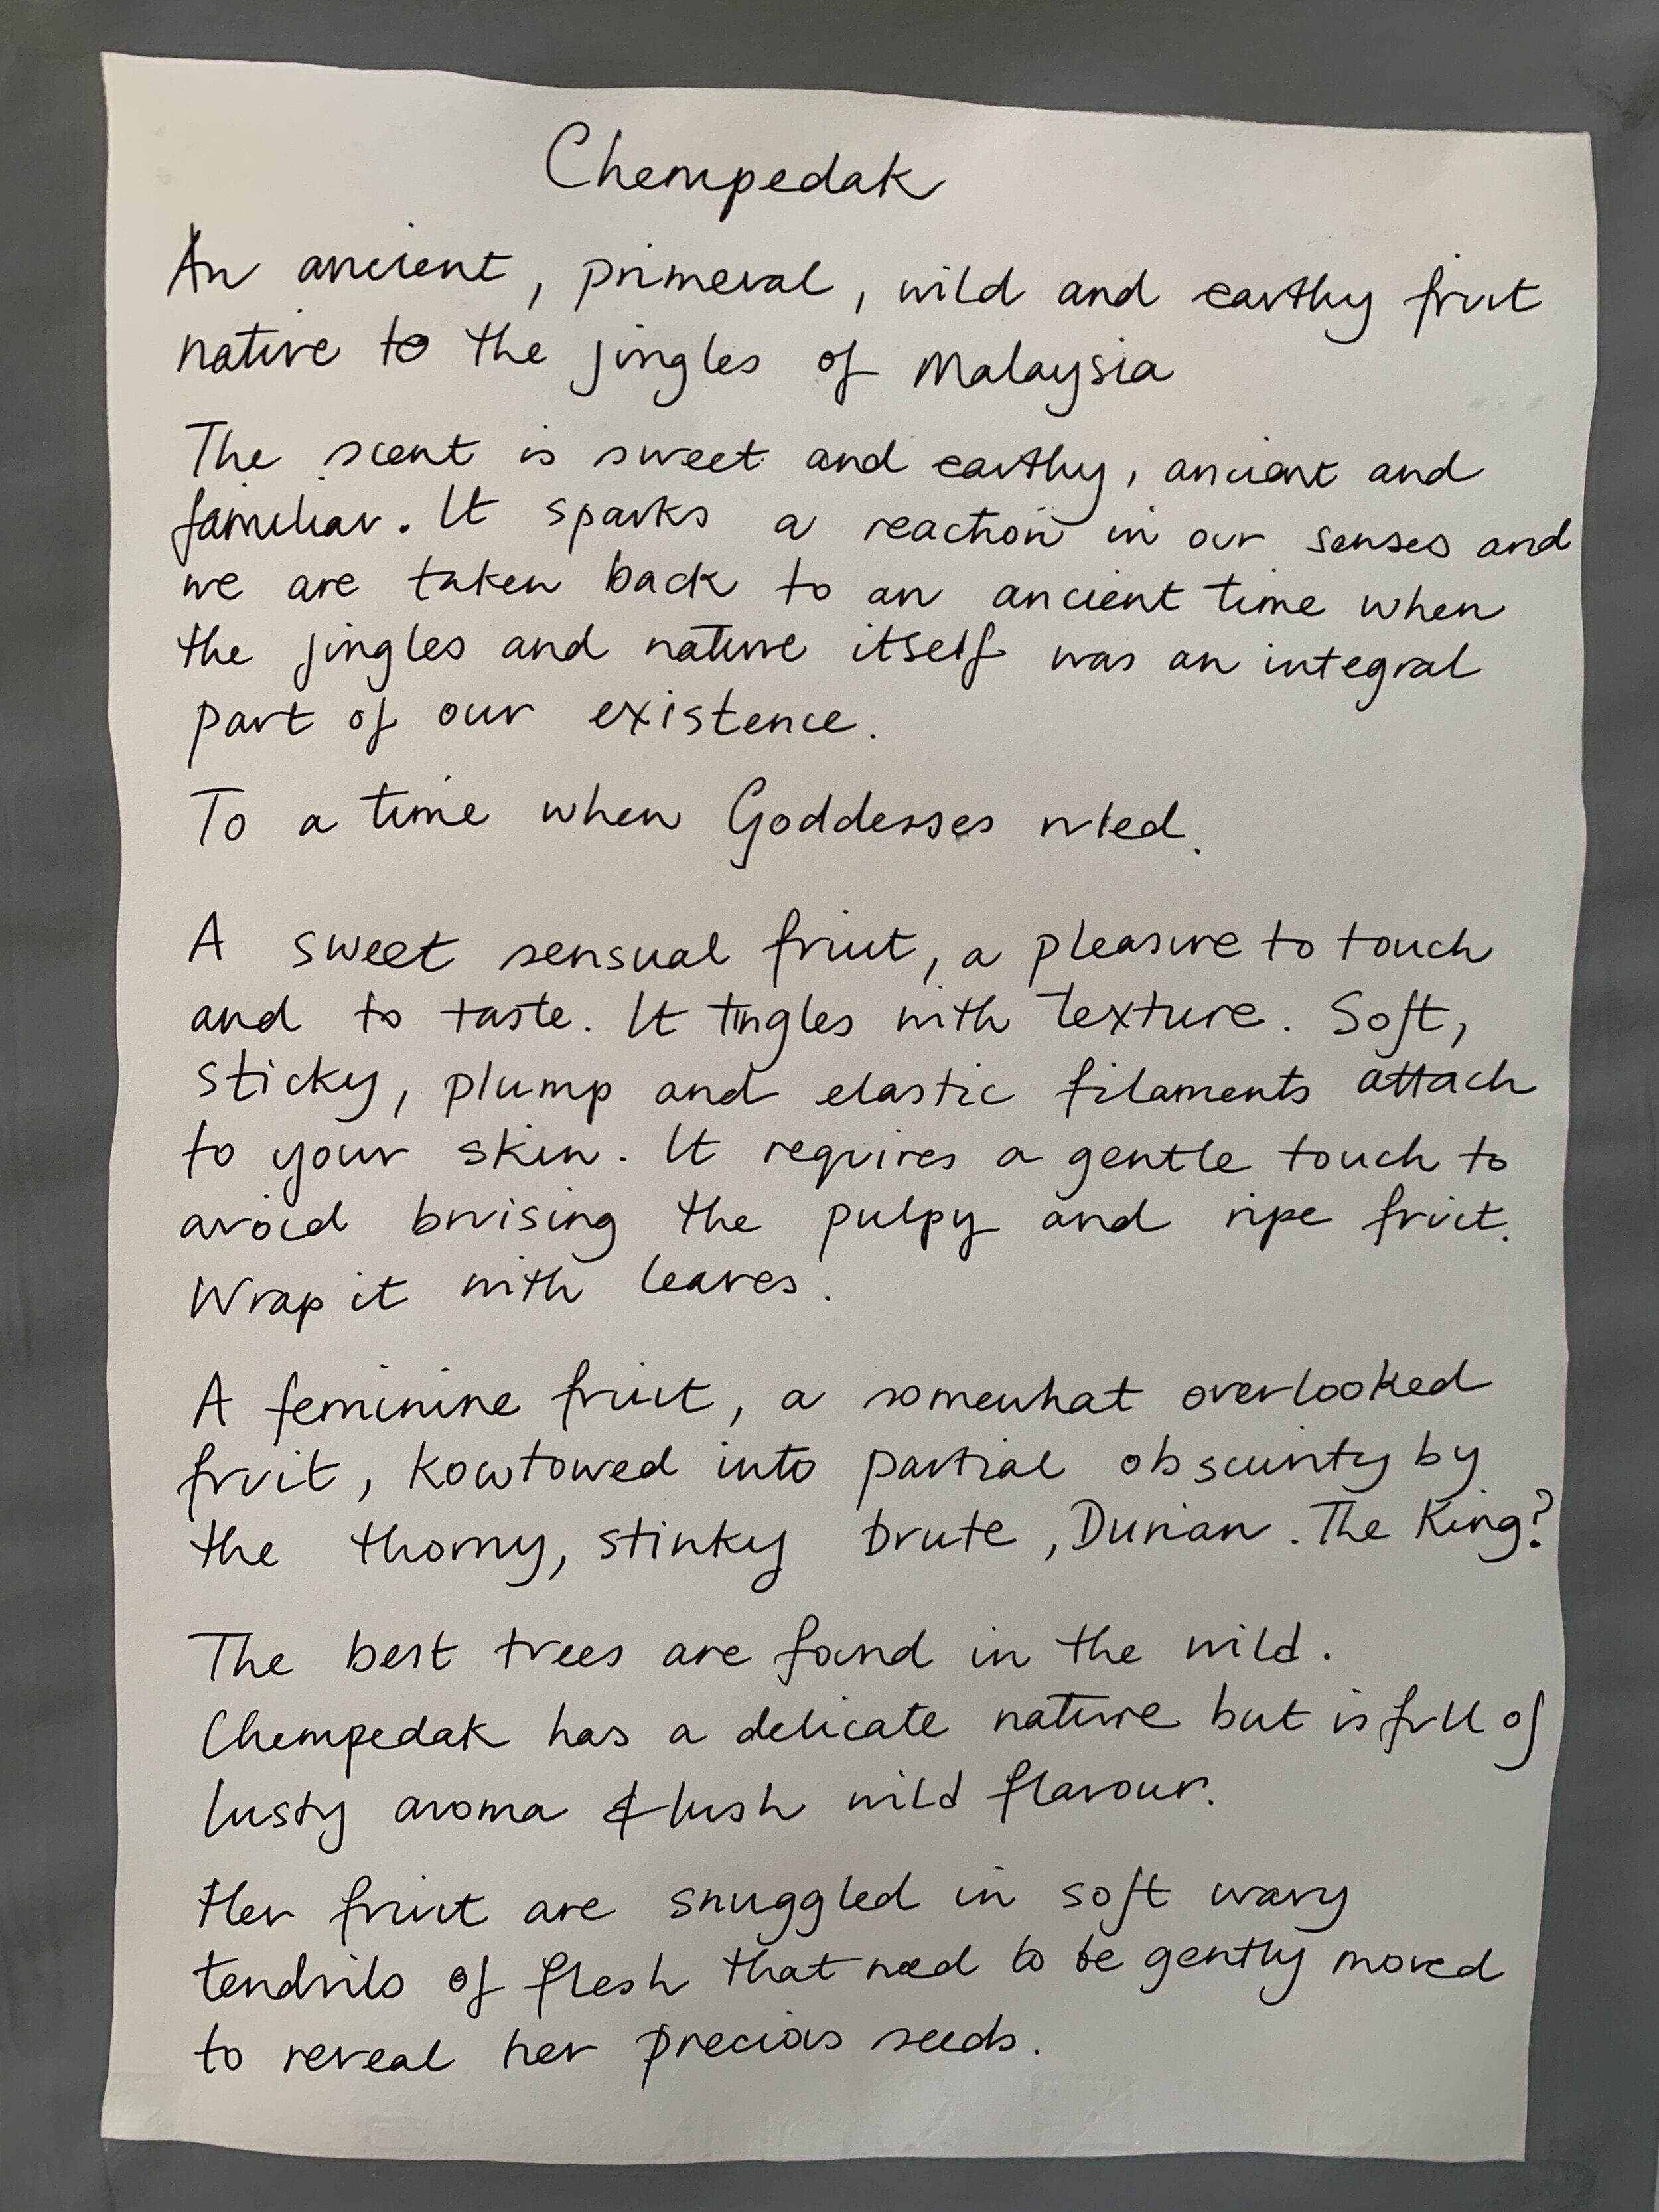 Chempedak
An ancient, primeval, wild and earthy fruit
native to the jungles of Malaysia
The scent is sweet and earthy, ancient and
familiar. It sparks a reaction in our senses and
we are taken back to an ancient time when
the jungles and nature itself was an integral
part of our existence.
To a time when Goddesses ruled.
A sweet sensual fruit, a pleasure to touch
and to taste. It tingles with texture. Soft,
sticky, plump and elastic filaments attach
to your skin. It requires a gentle touch to
avoid bruising the pulpy and ripe fruit.
Wrap it with leaves.
A feminine fruit, a somewhat overlooked
fruit, kowtowed into partial obscurity by
the thorny, stinky brute, Durian. The King?
The best trees are found in the wild.
Chempedak has a delicate nature but is full of
lusty aroma & lush wild flavour.
Her fruit are snuggled in soft wavy
tendrils of flesh that need to be gently moved
to reveal her precious seeds.